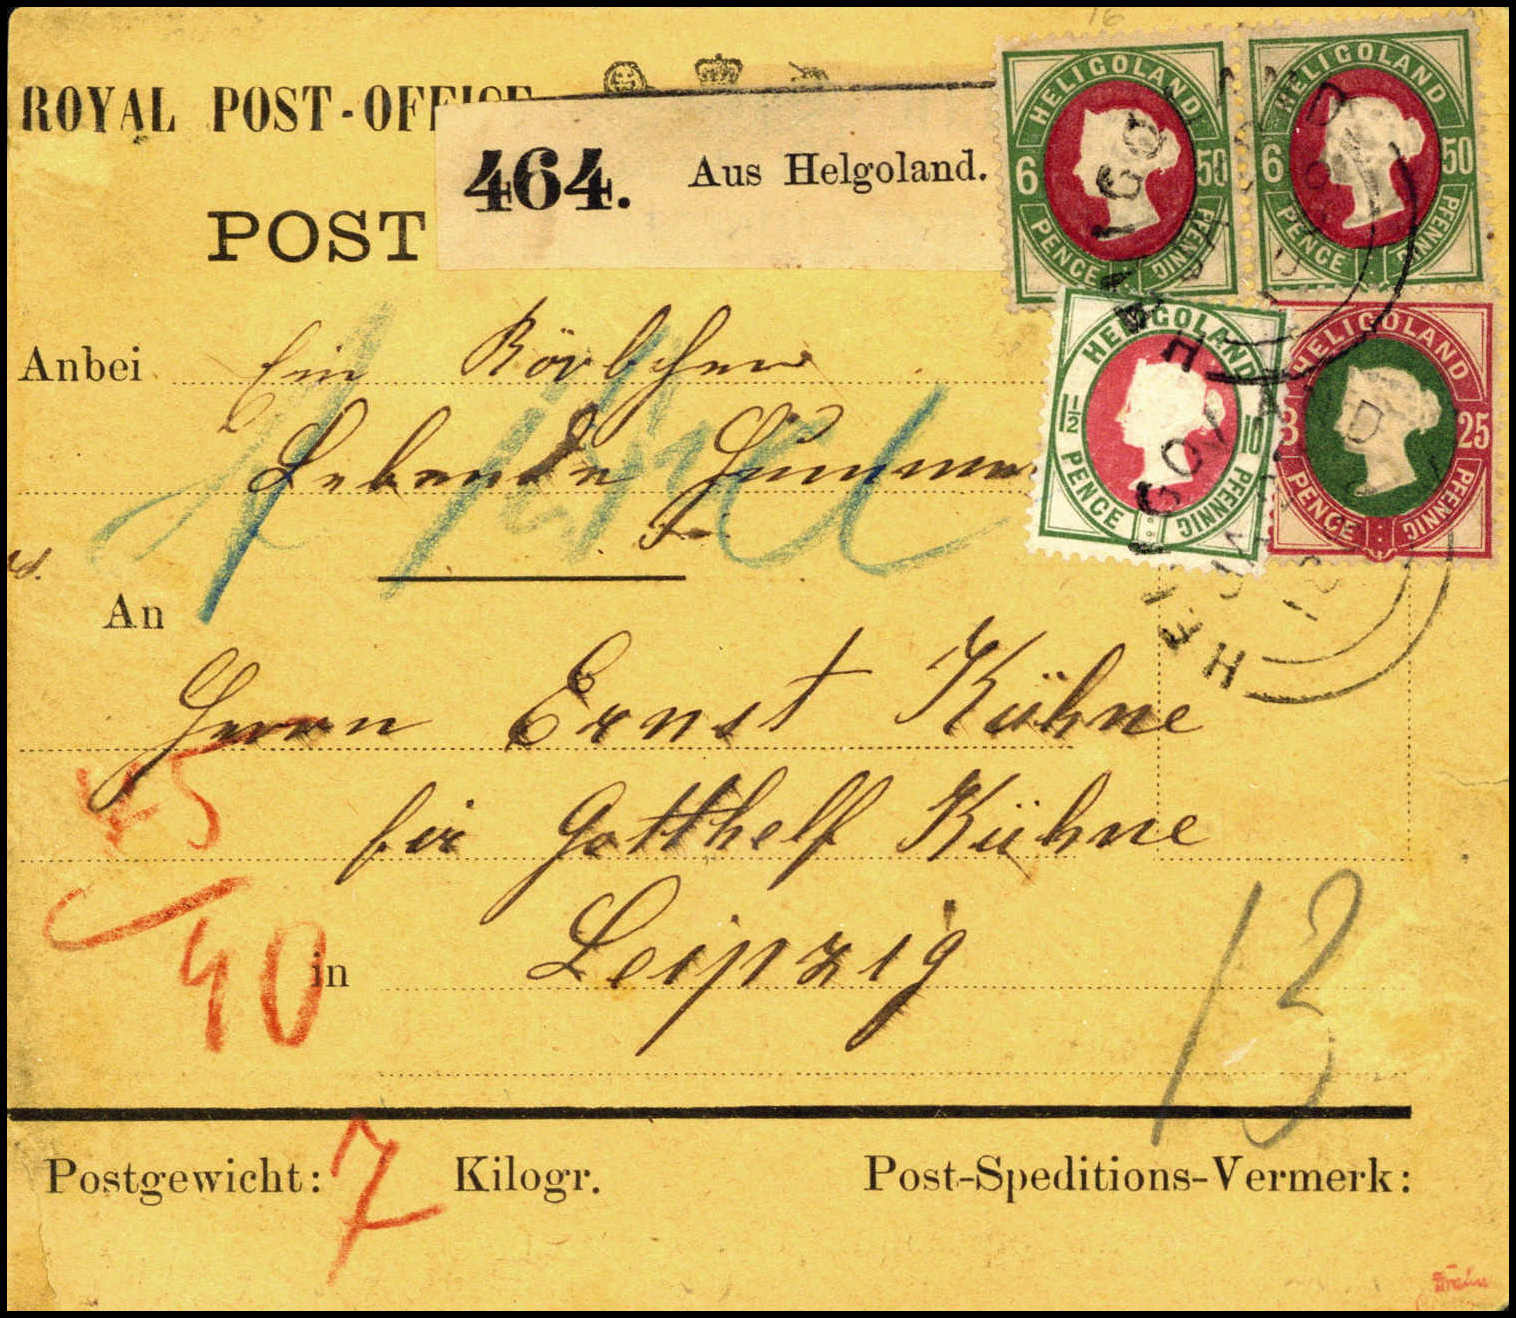 ROYAL POST-OFFICE
464. Aus Helgoland.
POST
HELIGOLAND 6 PENCE 50 PFENNIG
HELIGOLAND 6 PENCE 50 PFENNIG
HELIGOLAND 1½ PENCE 10 PFENNIG
HELIGOLAND 3 PENCE 25 PFENNIG
Anbei Ein Körbchen
Lebende Hummer
An
Herrn Ernst Kühne
für Gotthelf Kühne
45
40
in Leipzig
13
Postgewicht: 7 Kilogr. Post-Speditions-Vermerk: